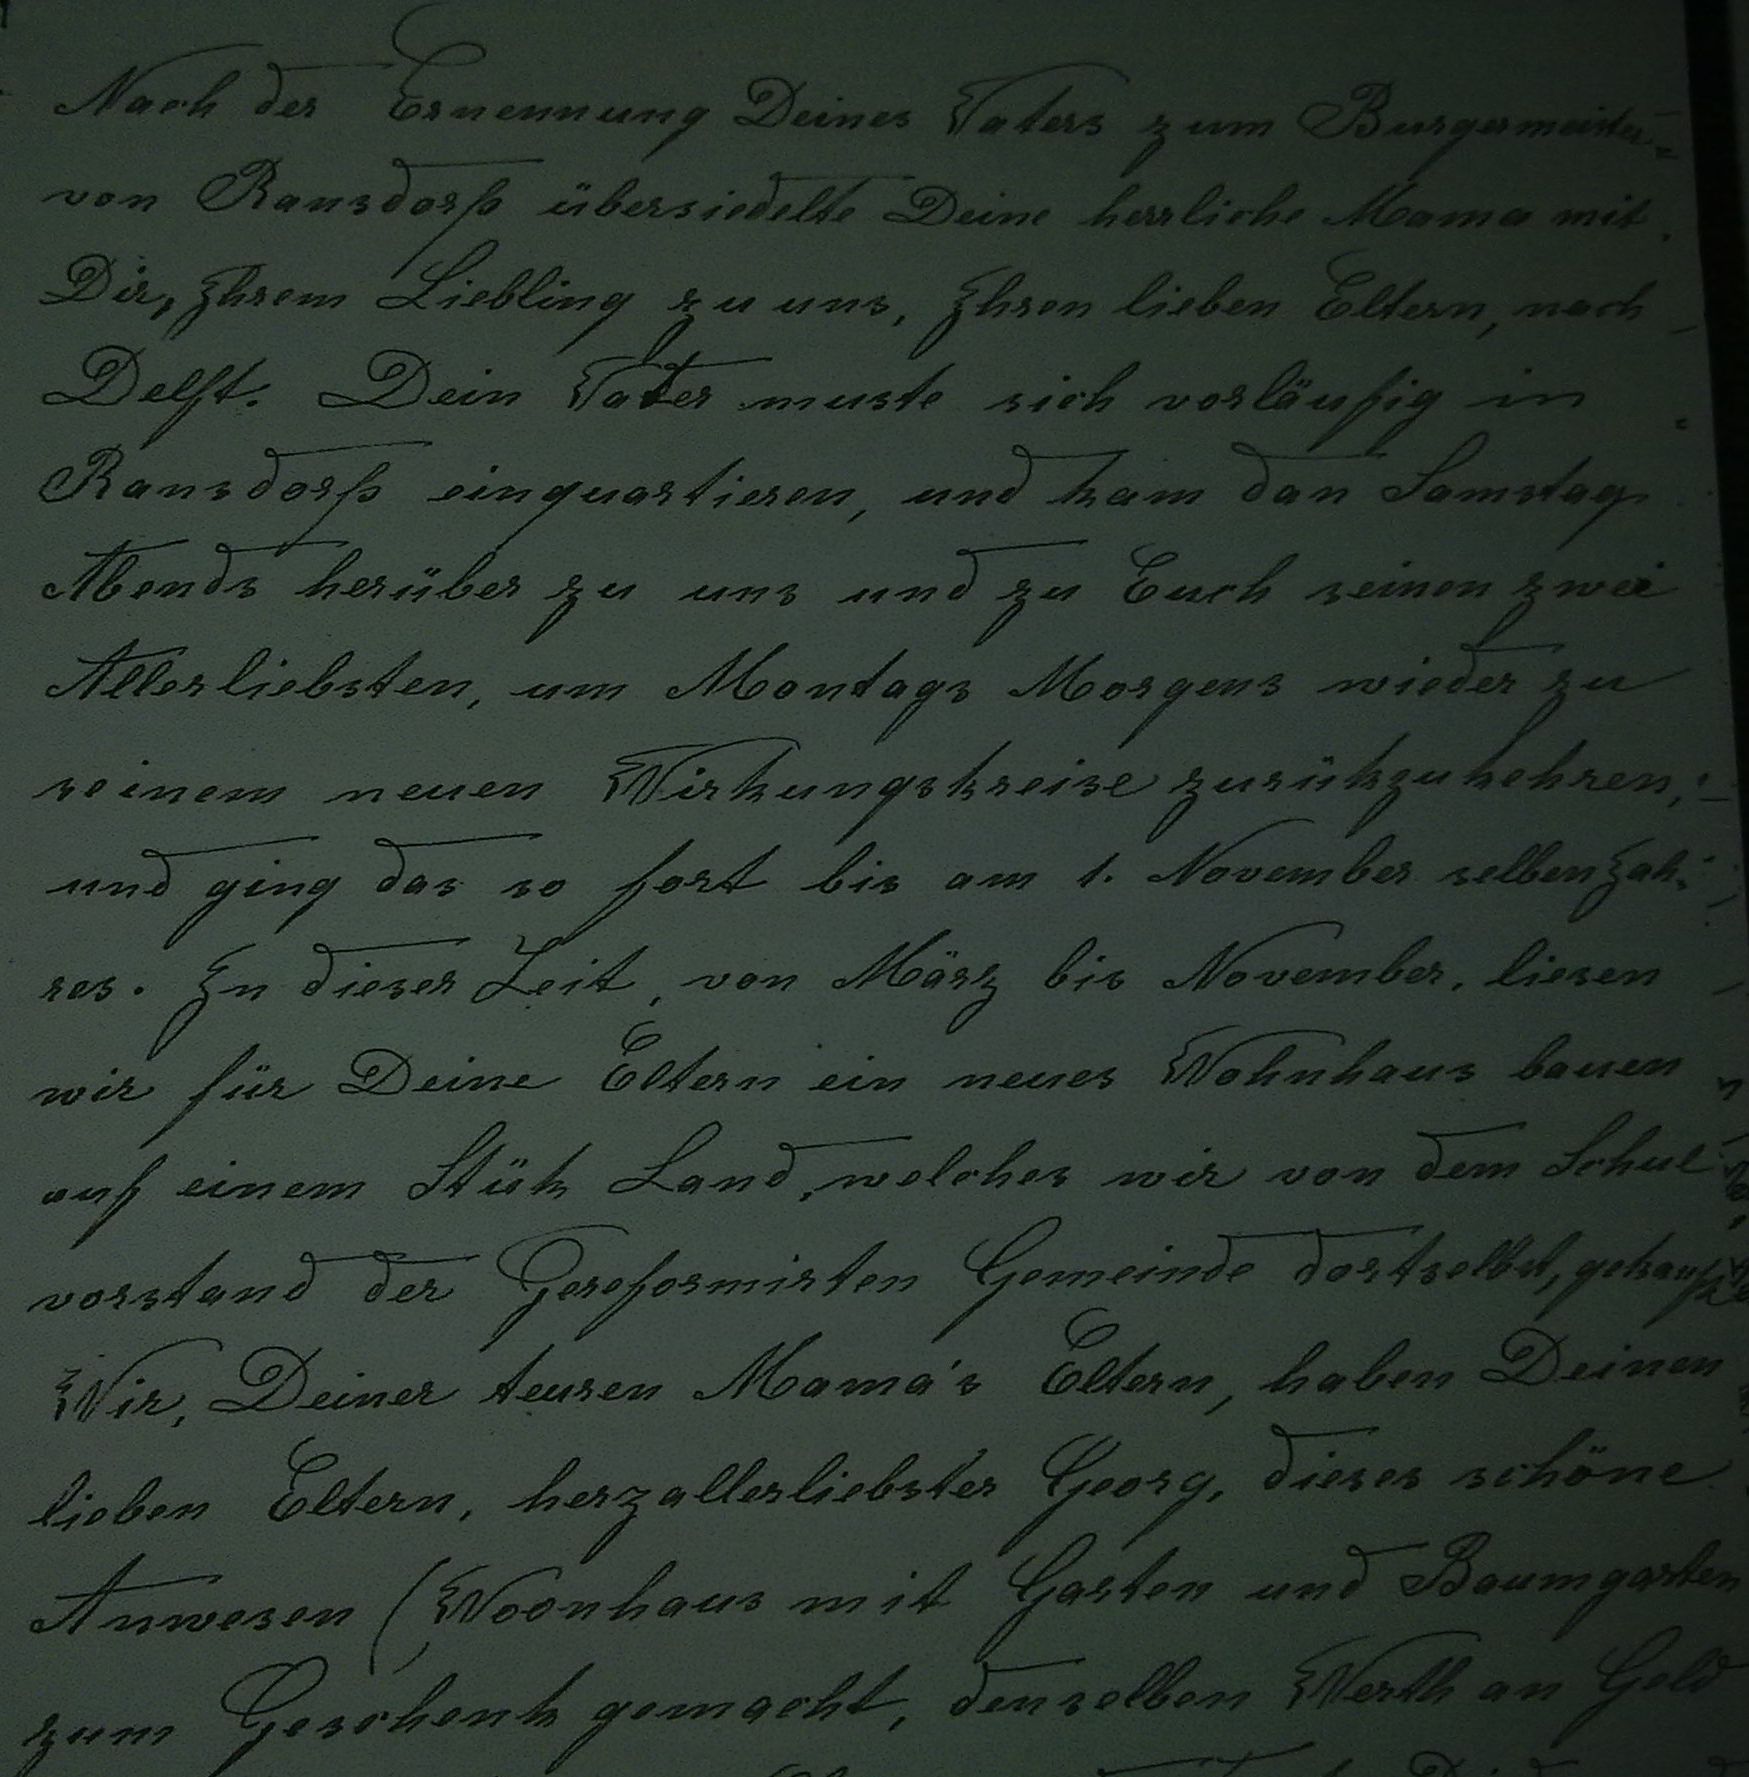 Nach der Ernennung Deines Vaters zum Burgermeister
von Ransdorf übersiedelte Deine herrliche Mama mit
Dir, Ihrem Liebling zu uns, Ihren lieben Eltern, nach
Delft. Dein Vater muste sich vorläufig in
Ransdorf einquartieren, und kam dan Samstag
Abends herüber zu uns und zu Euch seinen zwei
Allerliebsten, um Montags Morgens wieder zu
seinem neuen Wirkungskreise zurükzukehren,
und ging das so fort bis am 1. November selben Jah-
res. In dieser Zeit, von März bis November, liesen
wir für Deine Eltern ein neues Wohnhaus bauen
auf einem Stük Land, welches wir von dem Schul
vorstand der Gereformirten Gemeinde dortselbst, gekauft
Wir, Deiner teuren Mama's Eltern, haben Deinen
lieben Eltern, herzallerliebster Georg, dieses schöne
Anwesen (Woonhaus mit Garten und Baumgarten
zum Geschenk gemacht, denselben Werth an Geld